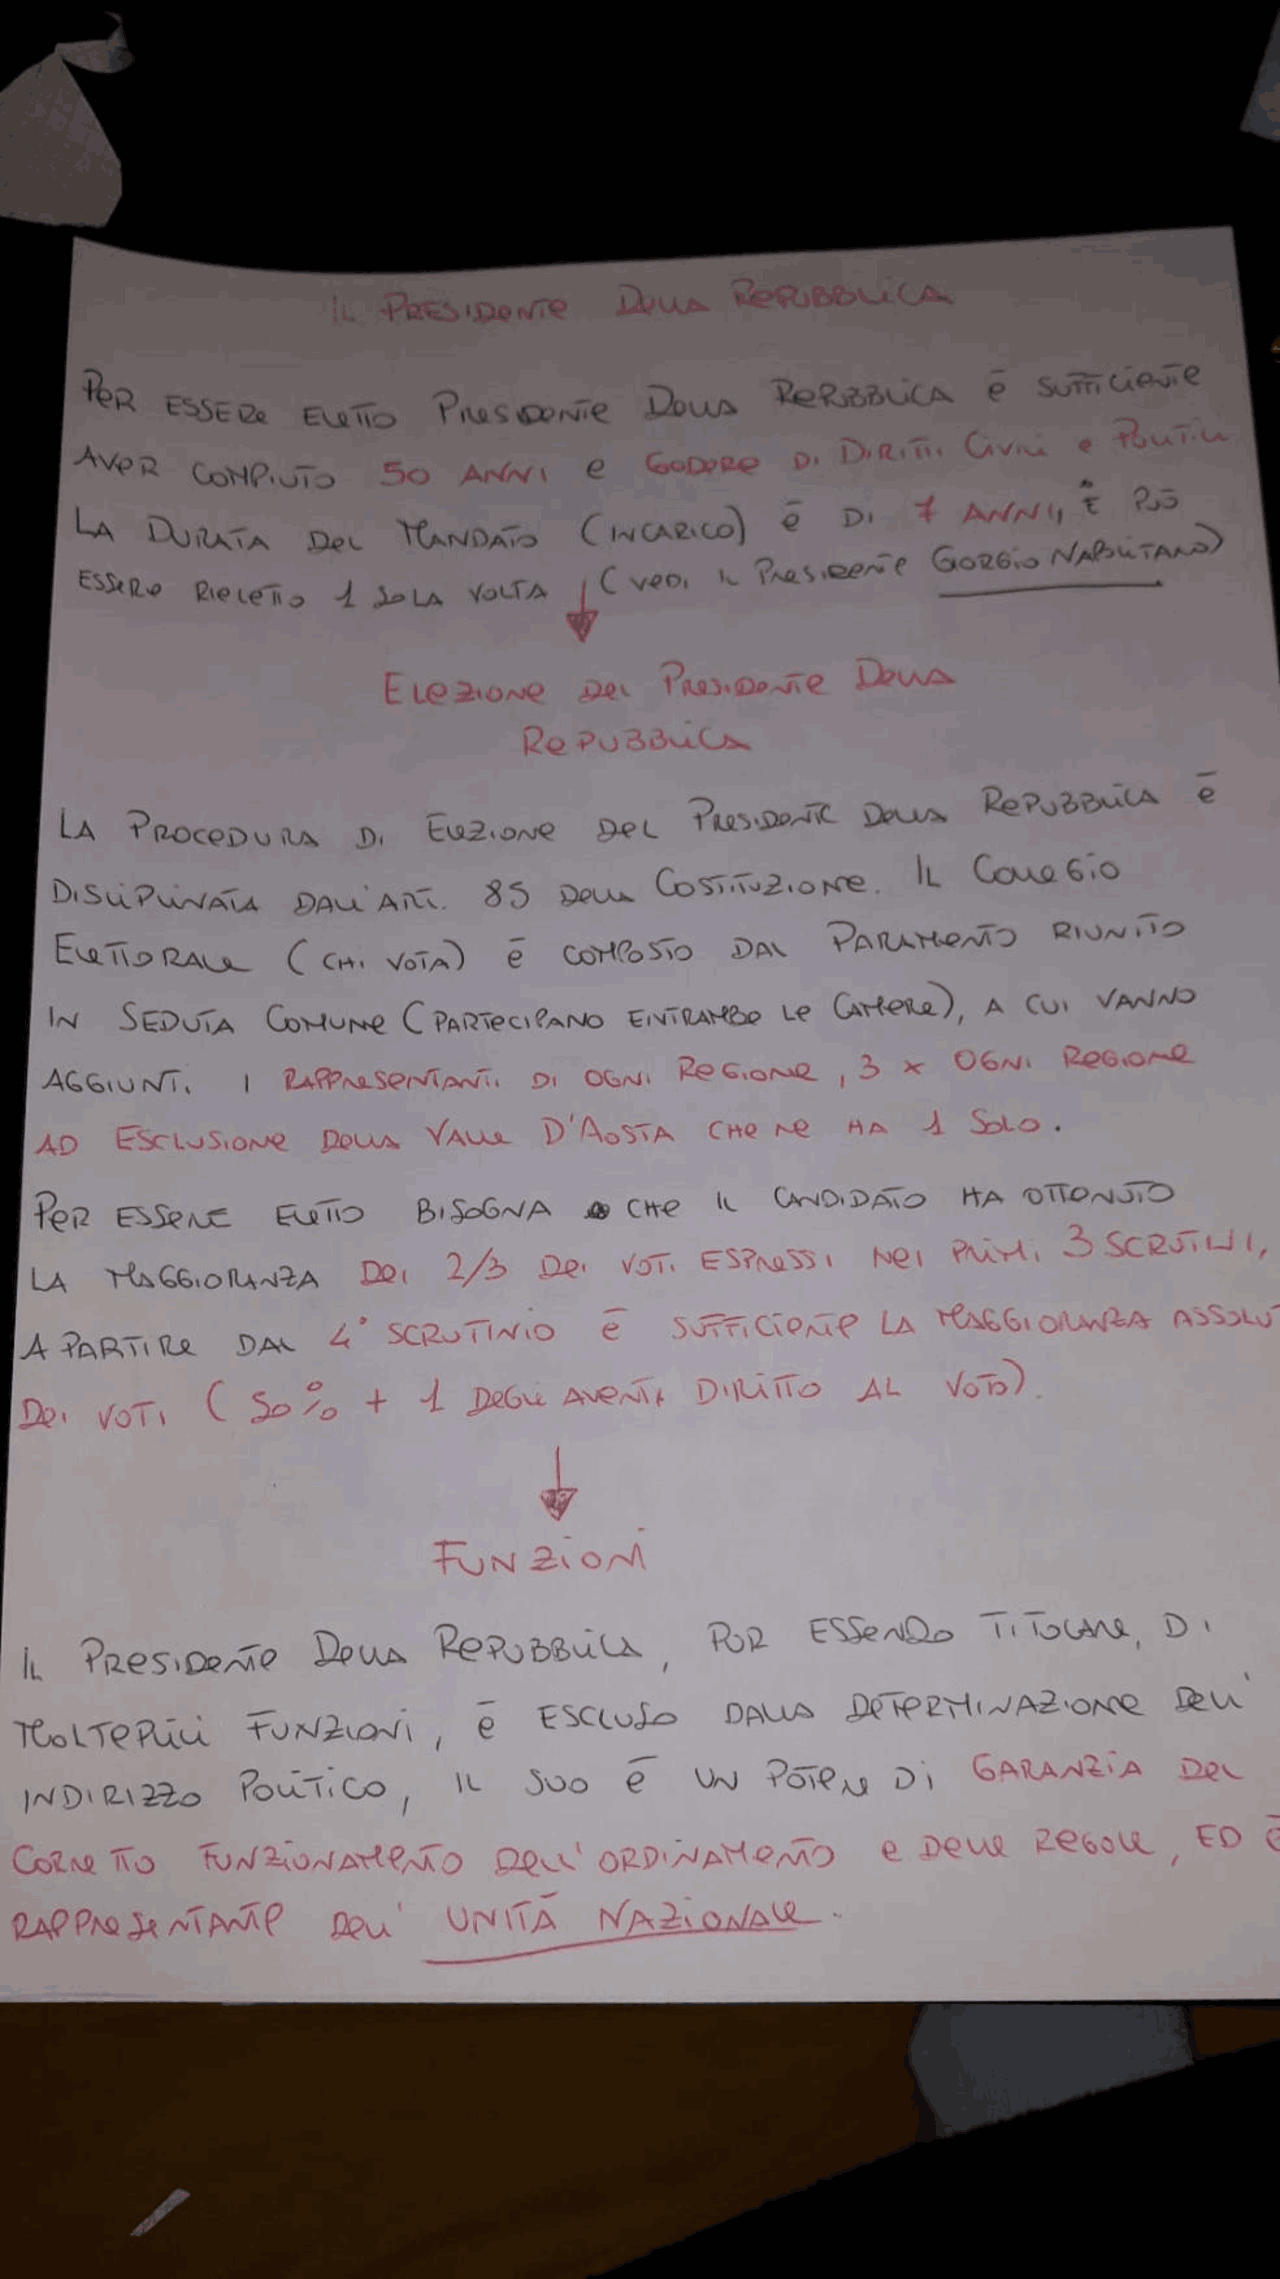 IL PRESIDENTE DELLA REPUBBLICA
PER ESSERE ELETTO PRESIDENTE DELLA REPUBBLICA È SUFFICIENTE
AVER COMPIUTO 50 ANNI E GODERE DI DIRITTI CIVILI E POLITICI
LA DURATA DEL MANDATO (INCARICO) È DI 7 ANNI, E PUÒ
ESSERE RIELETTO 1 SOLA VOLTA (VEDI IL PRESIDENTE GIORGIO NAPOLITANO)
ELEZIONE DEL PRESIDENTE DELLA
REPUBBLICA
LA PROCEDURA DI ELEZIONE DEL PRESIDENTE DELLA REPUBBLICA È
DISCIPLINATA DALL'ART. 85 DELLA COSTITUZIONE. IL COLLEGIO
ELETTORALE (CHI VOTA) È COMPOSTO DAL PARLAMENTO RIUNITO
IN SEDUTA COMUNE (PARTECIPANO ENTRAMBE LE CAMERE), A CUI VANNO
AGGIUNTI I RAPPRESENTANTI DI OGNI REGIONE, 3 X OGNI REGIONE
AD ESCLUSIONE DELLA VALLE D'AOSTA CHE NE HA 1 SOLO.
PER ESSERE ELETTO BISOGNA CHE IL CANDIDATO HA OTTENUTO
LA MAGGIORANZA DEI 2/3 DEI VOTI ESPRESSI NEI PRIMI 3 SCRUTINI,
A PARTIRE DAL 4° SCRUTINIO È SUFFICIENTE LA MAGGIORANZA ASSOLUT
DEI VOTI (50% + 1 DEGLI AVENTI DIRITTO AL VOTO).
FUNZIONI
IL PRESIDENTE DELLA REPUBBLICA, PUR ESSENDO TITOLARE, DI
MOLTEPLICI FUNZIONI, È ESCLUSO DALLA DETERMINAZIONE DELL'
INDIRIZZO POLITICO, IL SUO È UN POTERE DI GARANZIA DEL
CORRETTO FUNZIONAMENTO DELL'ORDINAMENTO E DELLE REGOLE, ED È
RAPPRESENTANTE DELL'UNITÀ NAZIONALE.